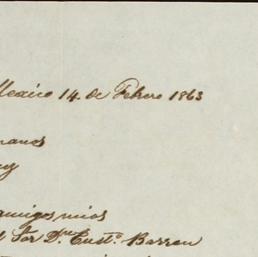 Mexico 14. de Febrero 1863
manos
amigos mios
Sor Dn. Eust.o Barron